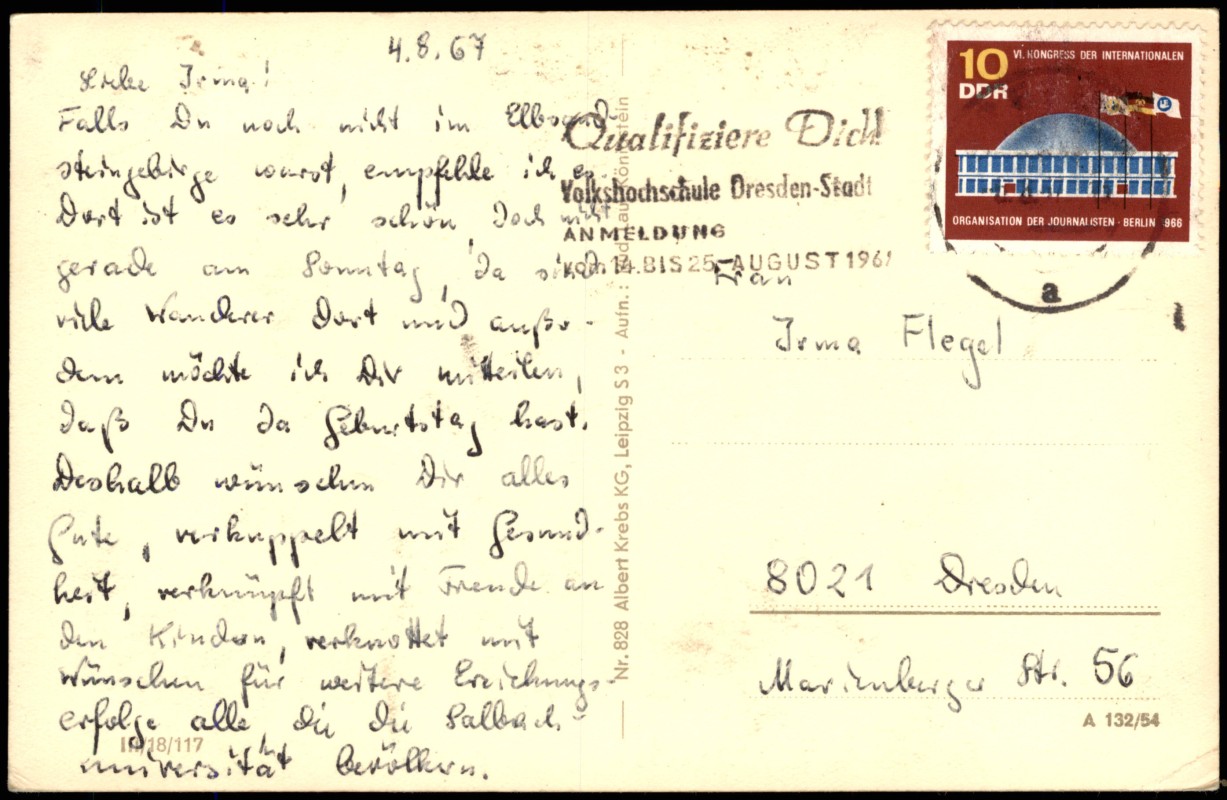 4.8.67
Liebe Irma!
Falls Du noch nicht im Elbsand-
steingebirge warst, empfehle ich es.
Dort ist es sehr schön, doch nicht
gerade am Sonntag, da sind
viele Wanderer dort und außer-
dem möchte ich Dir mitteilen,
daß Du da Geburtstag hast.
Deshalb wünschen Dir alles
Gute, verkuppelt mit Gesund-
heit, verknüpft mit Freude an
den Kindern, verknottet mit
Wünschen für weitere Erziehungs-
erfolge alle, die die Salbach-
universität bevölkern.
III/18/117
Nr. 828 Albert Krebs KG, Leipzig S 3 - Aufn.:
Qualifiziere Dich!
Volkshochschule Dresden-Stadt
ANMELDUNG
vom 14. BIS 25. AUGUST 1967
10
DDR
VI. KONGRESS DER INTERNATIONALEN
ORGANISATION DER JOURNALISTEN · BERLIN 1966
a
Frau
Irma Flegel
8021 Dresden
Marienberger Str. 56
A 132/54